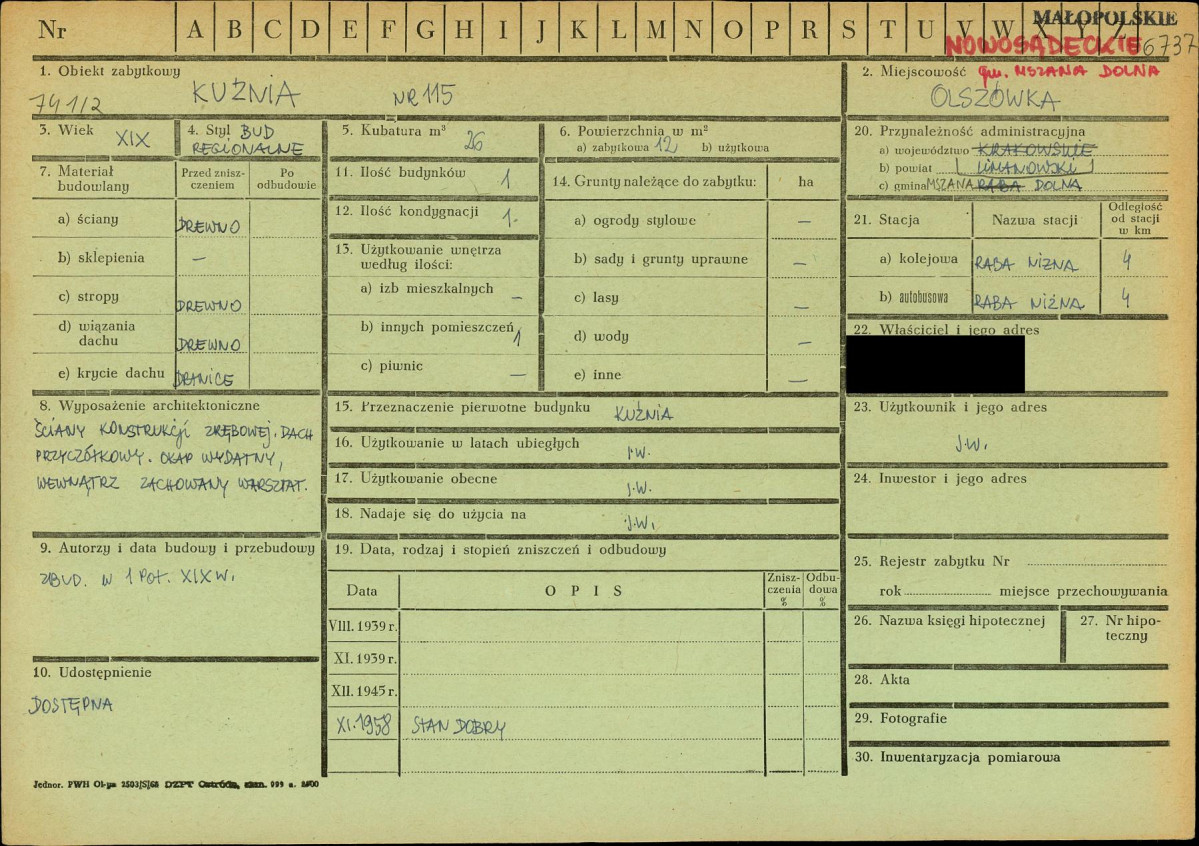 Nr A B C D E F G H I J K L M N O P R S T U V W X Y Z
MAŁOPOLSKIE
NOWOSĄDECKIE 6737
1. Obiekt zabytkowy
KUŹNIA NR 115
741/2
2. Miejscowość gm. MSZANA DOLNA
OLSZÓWKA
3. Wiek XIX
4. Styl BUD
REGIONALNE
5. Kubatura m³
26
6. Powierzchnia w m²
a) zabytkowa 12 b) użytkowa
20. Przynależność administracyjna
a) województwo KRAKOWSKIE
b) powiat LIMANOWSKI
c) gmina MSZANA RABA DOLNA
7. Materiał
budowlany
Przed znisz-
czeniem
Po
odbudowie
a) ściany DREWNO
b) sklepienia —
c) stropy DREWNO
d) wiązania
dachu DREWNO
e) krycie dachu DRANICE
11. Ilość budynków 1
12. Ilość kondygnacji 1.
13. Użytkowanie wnętrza
według ilości:
a) izb mieszkalnych —
b) innych pomieszczeń 1
c) piwnic —
14. Grunty należące do zabytku: ha
a) ogrody stylowe —
b) sady i grunty uprawne —
c) lasy —
d) wody —
e) inne —
21. Stacja Nazwa stacji
Odległość
od stacji
w km
a) kolejowa RABA NIŻNA 4
b) autobusowa RABA NIŻNA 4
22. Właściciel i jego adres
8. Wyposażenie architektoniczne
ŚCIANY KONSTRUKCJI ZRĘBOWEJ. DACH
PRZYCZÓŁKOWY. OKAP WYDATNY,
WEWNĄTRZ ZACHOWANY WARSZTAT.
15. Przeznaczenie pierwotne budynku KUŹNIA
16. Użytkowanie w latach ubiegłych J.W.
17. Użytkowanie obecne J.W.
18. Nadaje się do użycia na J.W.
23. Użytkownik i jego adres
J.W.
24. Inwestor i jego adres
9. Autorzy i data budowy i przebudowy
ZBUD. W 1 POŁ. XIX W.
19. Data, rodzaj i stopień zniszczeń i odbudowy
Data O P I S
Znisz-
czenia
%
Odbu-
dowa
%
VIII. 1939 r.
XI. 1939 r.
XII. 1945 r.
XI. 1958 STAN DOBRY
25. Rejestr zabytku Nr
rok miejsce przechowywania
26. Nazwa księgi hipotecznej
27. Nr hipo-
teczny
28. Akta
29. Fotografie
30. Inwentaryzacja pomiarowa
10. Udostępnienie
DOSTĘPNA
Jednor. PWH Ol-yn 2503/S/68 DZPT Ostróda, zam. 999 n.